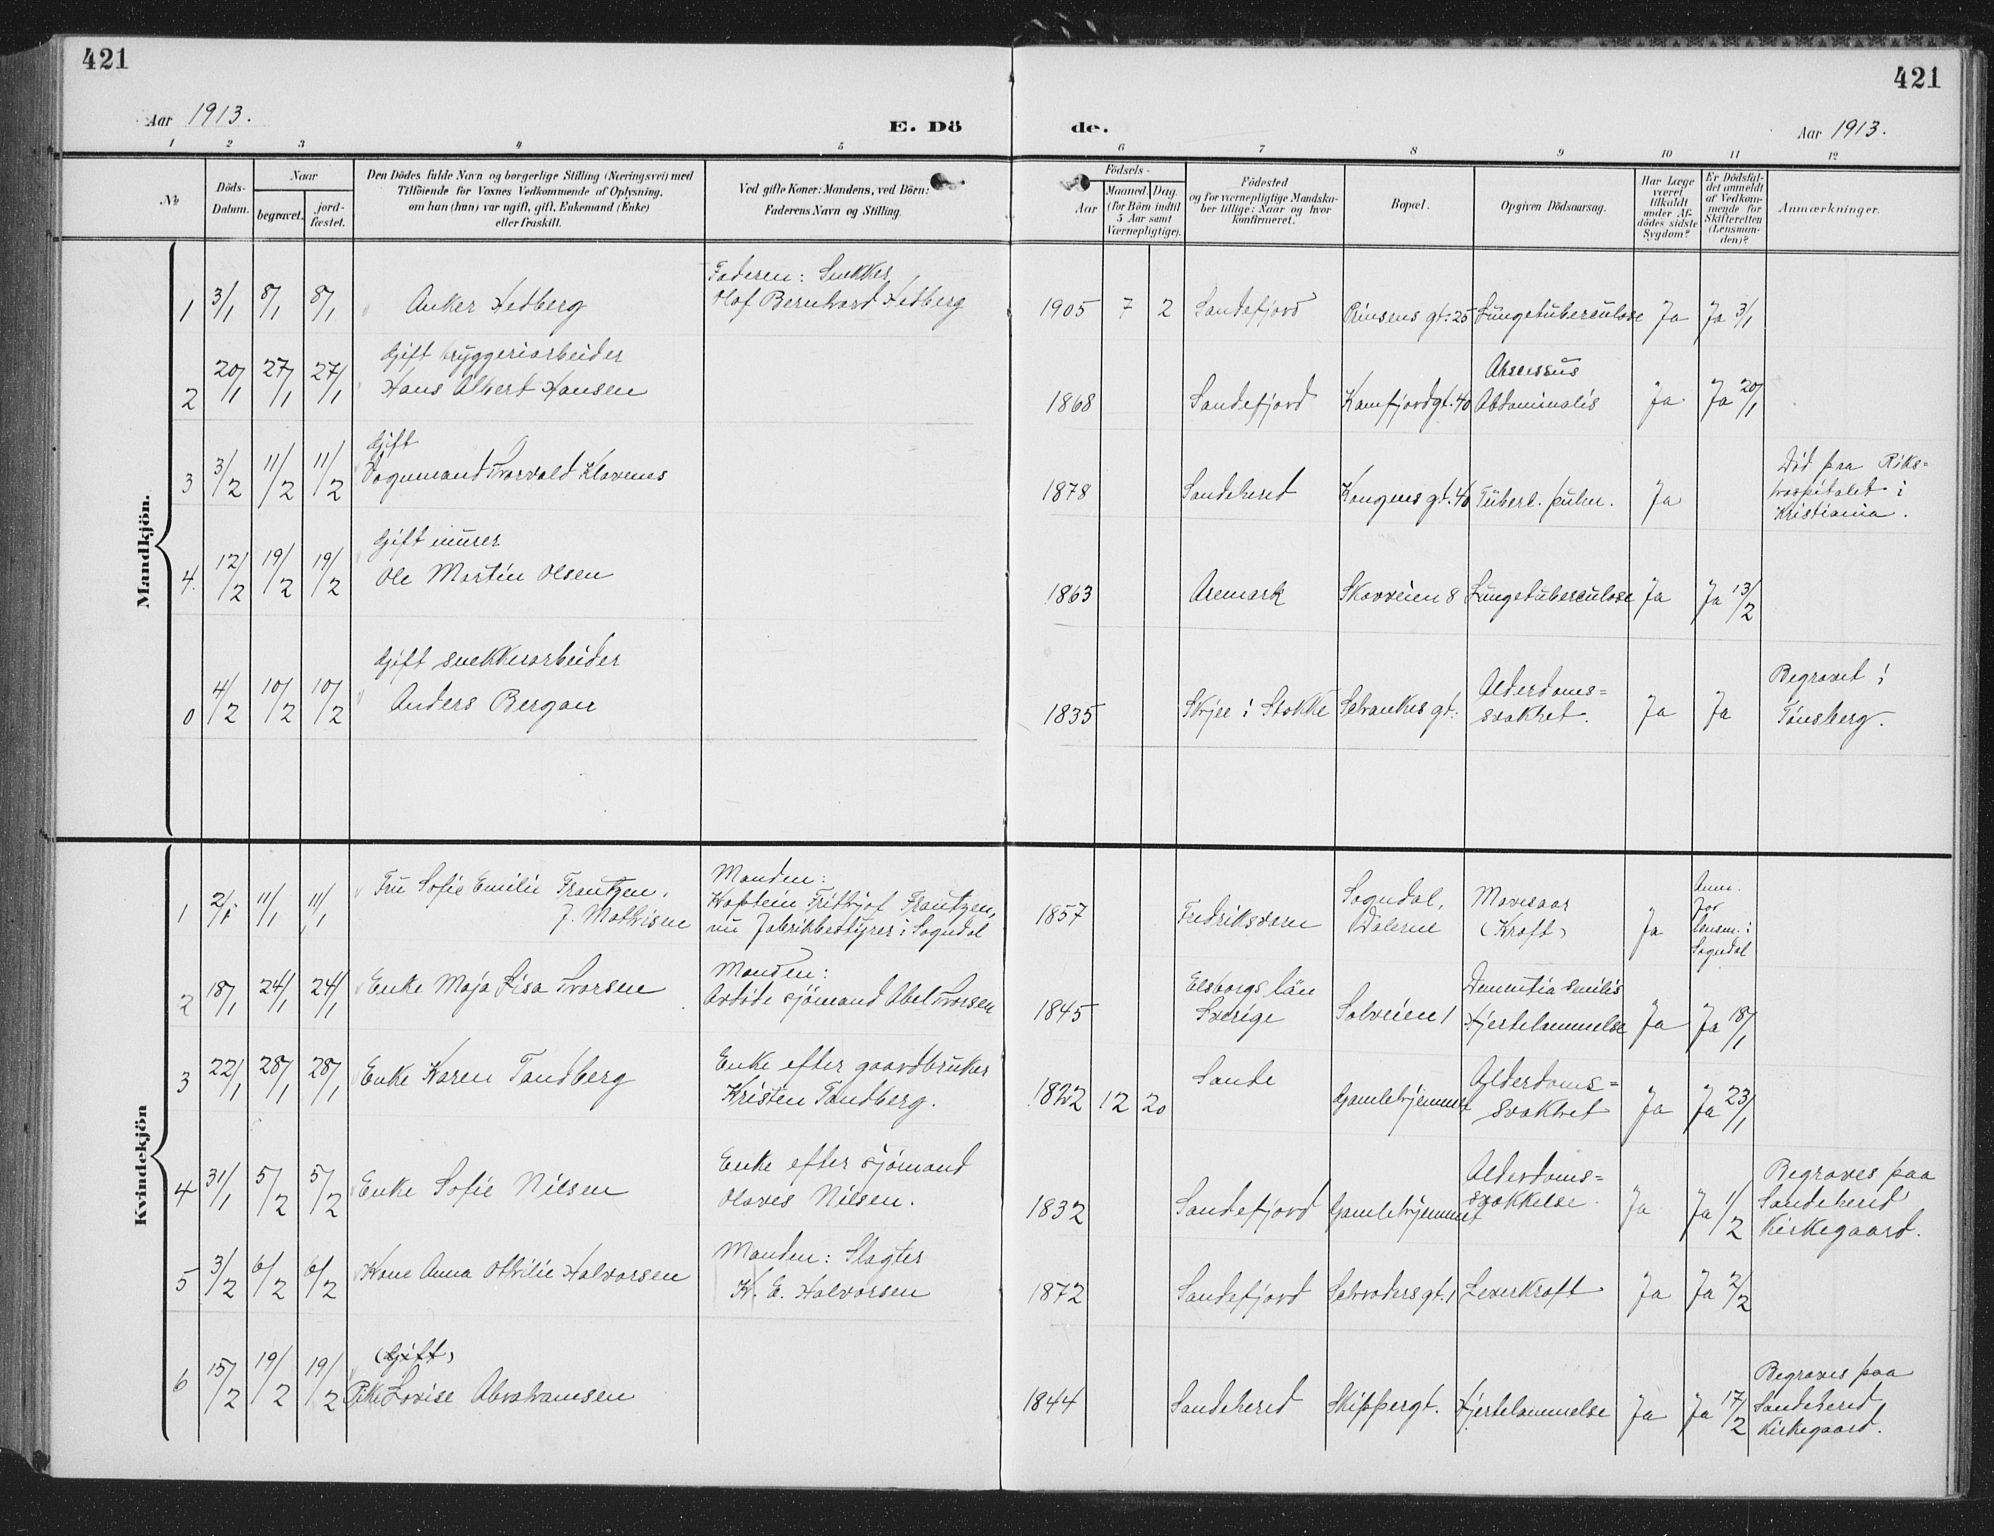 421
421
Aar 1913.
E. Dö
de.
Aar 1913.
1 2 3 4 5 6 7 8 9 10 11 12
No
Döds-Datum.
Naar
begravet.
jord-fæstet.
Den Dödes fulde Navn og borgerlige Stilling (Næringsvei) med
Tilföiende for Voxnes Vedkommende af Oplysning,
om han (hun) var ugift, gift, Enkemand (Enke)
eller fraskilt.
Ved gifte Koner: Mandens, ved Börn:
Faderens Navn og Stilling.
Födsels-
Aar
Maaned. Dag.
(for Börn indtil
5 Aar samt
Værnepligtige).
Födested
og for værnepligtige Mandska-
ber tillige: Naar og hvor
konfirmeret.
Bopæl.
Opgiven Dödsaarsag.
Har Læge
været
tilkaldt
under Af-
dödes sidste
Sygdom?
Er Dödsfal-
det anmeldt
af Vedkom-
mende for
Skifteretten
(Lensman-
den)?
Anmærkninger.
Mandkjön.
1 3/1 8/1 8/1 Anker Hedberg
Faderen: Snekker
Olaf Bernhard Hedberg
1905 7 2 Sandefjord Prinsens gt. 25 Lungetuberculose Ja Ja 3/1
2 20/1 27/1 27/1 Gift bryggeriarbeider
Hans Albert Hansen
1868 Sandefjord Kamfjordgt. 40 Abscessus
Abdominalis Ja Ja 20/1
3 3/2 11/2 11/2 Gift
Vognmand Thorvald Klavenes
1878 Sandeherred Kongens gt. 40 Tuberl. pulm. Ja
Død paa Riks-
hospitalet i
Kristiania.
4. 12/2 19/2 19/2 Gift murer
Ole Martin Olsen
1863 Aremark Skovveien 8 Lungetuberculose Ja Ja 13/2
0 4/2 10/2 10/2 Gift snekkerarbeider
Anders Bergan
1835 Skjee i Stokke Schankes gt. Alderdoms-
svakhet. Ja Ja
Begravet i
Tønsberg.
Kvindekjön
1 2/1 11/1 11/1 Fru Sofie Emilie Frantzen,
f. Mathisen
Manden:
Kaptein Frithjof Frantzen,
nu Fabrikbestyrer i Sogndal
1857 Fredriksværn Sogndal,
Dalerne
Mavesaar
(Kræft)
Ja
Anm.
for
lensm. i
Sogndal
2 18/1 24/1 24/1 Enke Maja Lisa Thorsen
Manden:
Avdøde sjømand Abel Thorsen
1845 Elsborgs län
Sverige
Solveien 1 Dementia senilis
Hjertelammelse Ja Ja 18/1
3 22/1 28/1 28/1 Enke Karen Tandberg
Enke efter gaardbruker
Kristen Tandberg.
1822 12 20 Sande Gamlehjemmet Alderdoms-
svakhet Ja Ja 23/1
4 31/1 5/2 5/2 Enke Sofie Nilsen
Enke efter sjømand
Olaves Nilsen.
1832 Sandefjord Gamlehjemmet Alderdoms-
svakkelse. Ja Ja 1/2
Begraves paa
Sandeherred
Kirkegaard.
5 3/2 6/2 6/2 Kone Anna Othilie Halvorsen
Manden: Slagter
K. E. Halvorsen
1872 Sandefjord Leverkræft Ja Ja 2/2
6 15/2 19/2 19/2 (Gift)
Pike Lovise Abrahamsen
1844 Sandeherred Skippergt. Hjertelammelse Ja Ja 17/2
Begraves paa
Sandeherred
Kirkegaard.